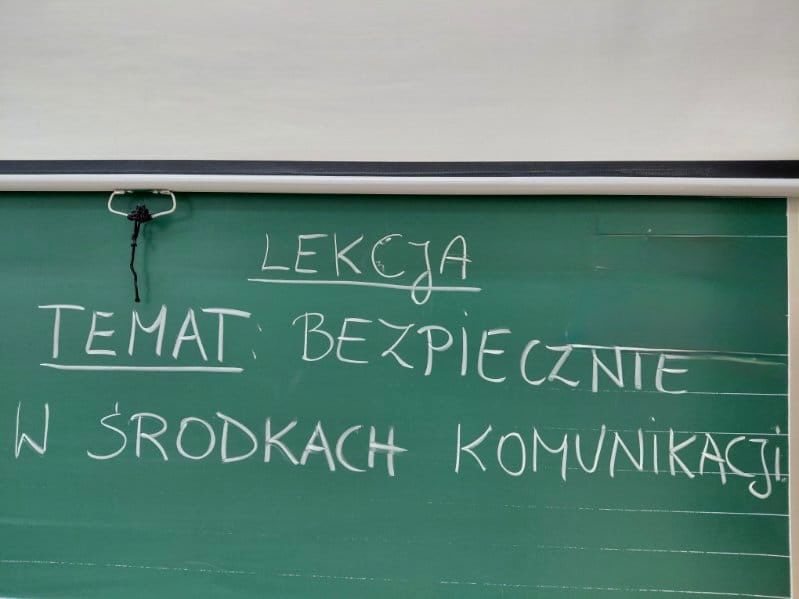 LEKCJA
TEMAT: BEZPIECZNIE
W ŚRODKACH KOMUNIKACJI.